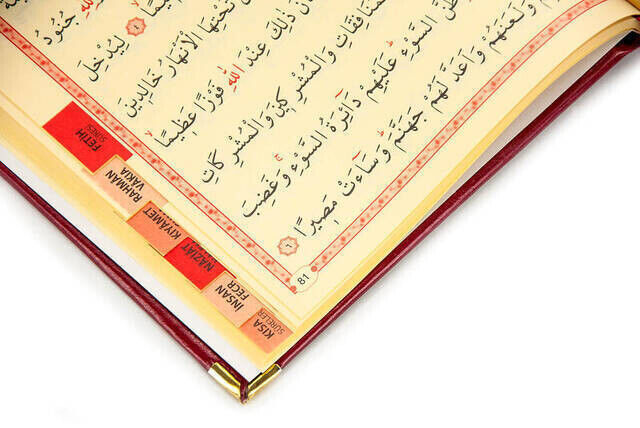 جُنُودُ
٤ لِيُدْخِلَ
تَحْتِهَا الْاَنْهَارُ خَالِدِينَ
ذٰلِكَ عِنْدَ اللّٰهِ فَوْزًا عَظِيمًا
وَالْمُشْرِكِينَ وَالْمُشْرِكَاتِ
السَّوْءِ عَلَيْهِمْ دَٓائِرَةُ السَّوْءِ وَغَضِبَ
وَلَعَنَهُمْ وَاَعَدَّ لَهُمْ جَهَنَّمَ وَسَٓاءَتْ مَصِيرًا ٦
81
FETİH
SURESİ
RAHMAN
VAKIA
KIYAMET
NAZİAT
İNSAN
FECR
KISA
SURELER